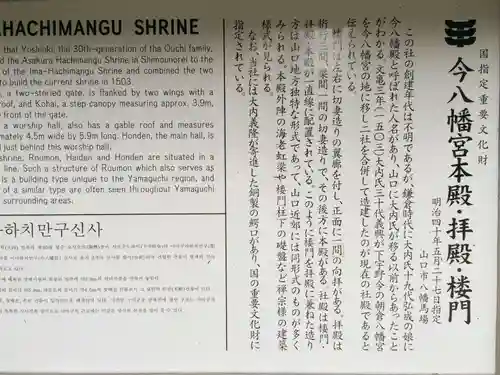 国指定重要文化財
今八幡宮本殿・拝殿・楼門
明治四十年五月二十七日指定
山口市八幡馬場
この社の創建年代は不明であるが鎌倉時代に大内氏十九代弘成の娘に
今八幡殿と呼ばれた人名があり、山口に大内氏が移る以前からあったこと
がわかる。文亀三年(一五〇三)大内氏三十代義興が下宇野令の朝倉八幡宮
を今八幡宮の地に移し二社を合併して造建したのが現在の社殿であると
伝えられている。
楼門は左右に切妻造りの翼廊を付し、正面に一間の向拝がある。拝殿は
桁行三間、梁間一間の切妻造りで、その後方に本殿がある。社殿は楼門・
拝殿・本殿が一直線に配置されている。このように楼門を拝殿に兼ねた造り
方は山口地方独特な形式であって、山口近郊には同形式のものが多く
みられる。本殿外陣の海老虹梁や楼門柱下の礎盤など禅宗様の建築
様式が見られる。
なお、当社には大内義隆が寄進した銅製の鰐口があり、国の重要文化財に
指定されている。
HACHIMANGU SHRINE
that Yoshioki, the 30th-generation of the Ouchi family,
the Asakura Hachimangu Shrine in Shimounorei to the
of the Ima-Hachimangu Shrine and combined the two
to build the current shrine in 1503.
, a two-storied gate, is flanked by two wings with a
roof, and Kohai, a step canopy measuring approx. 3.9m,
front of the gate.
a worship hall, also has a gable roof and measures
ximately 4.5m wide by 5.9m long. Honden, the main hall, is
just behind this worship hall.
shrine, Roumon, Haiden and Honden are situated in a
line. Such a structure of Roumon which also serves as
is a building type unique to the Yamaguchi region, and
of a similar type are often seen throughout Yamaguchi
surrounding areas.
-하치만구신사